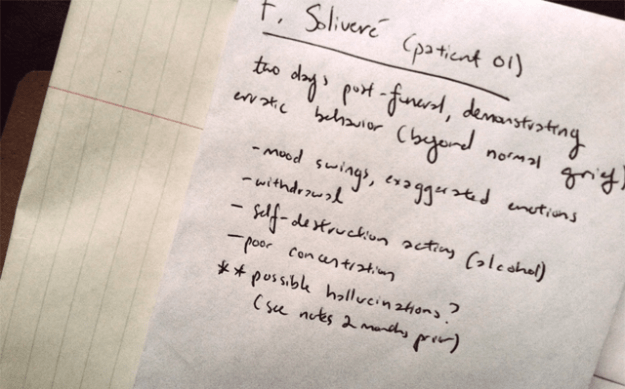 F. Soliveré (patient 01)
two days post-funeral, demonstrating
erratic behavior (beyond normal grief)
- mood swings, exaggerated emotions
- withdrawal
- self-destruction acting (alcohol)
- poor concentration
** possible hallucinations?
(see notes 2 months prior)